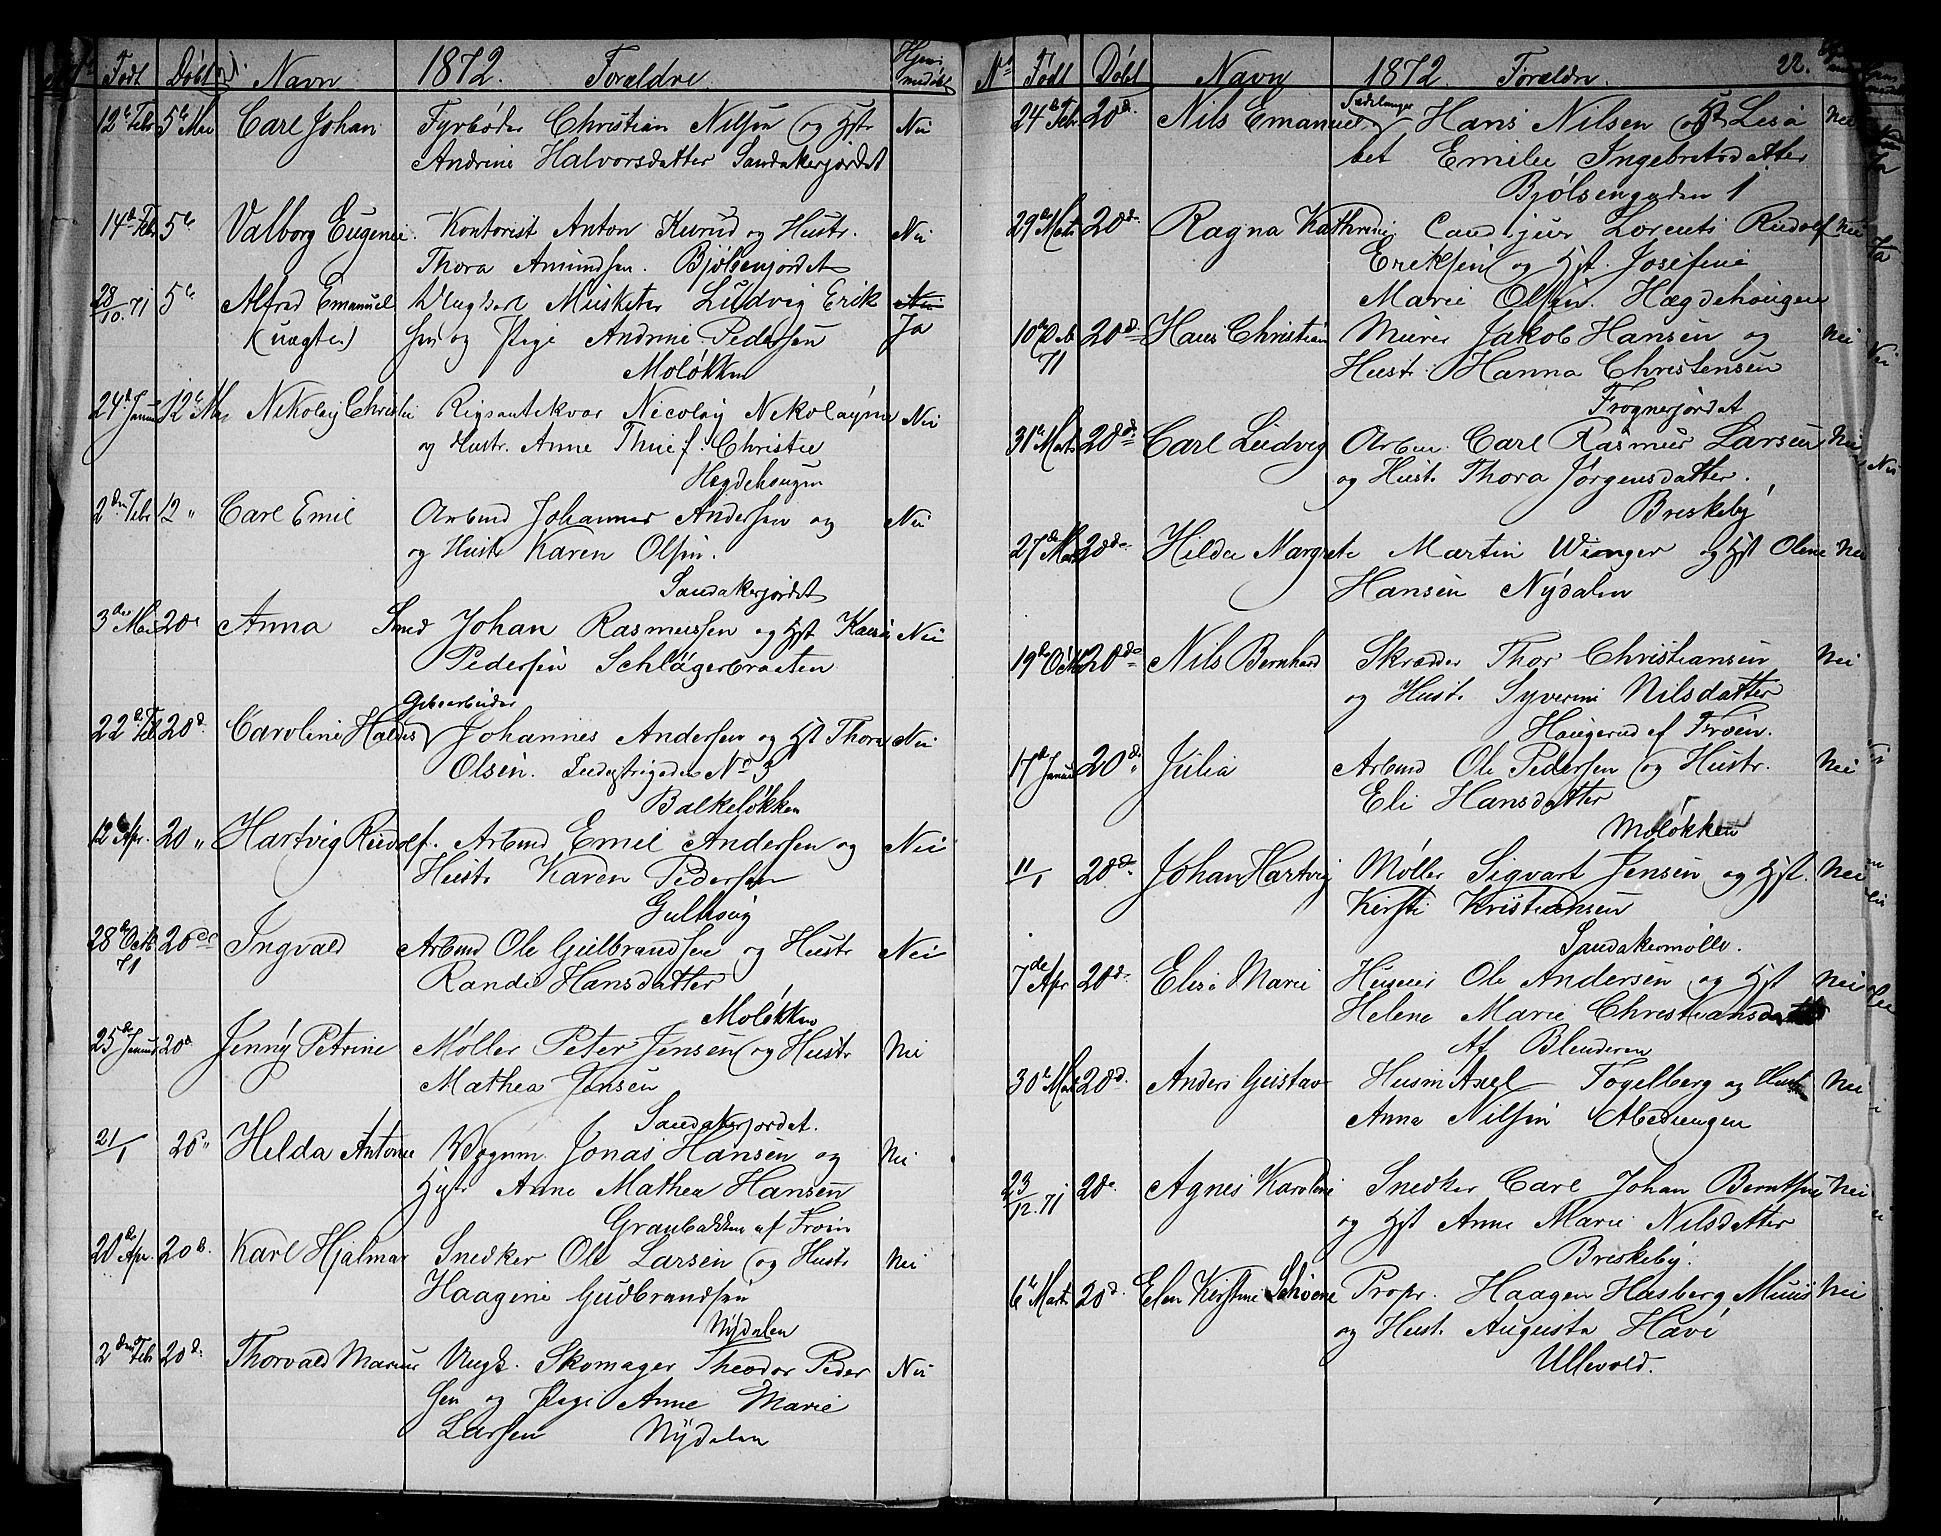 No Født Døbt Navn 1872. Forældre. Hjemmedøbt
12te Febr 5te Mai Carl Johan Fyrbøder Christian Nilsen og Hstr Nei
Andrine Halvorsdatter Sandakerjordet
14de Febr 5te Valborg Eugenie. Kontorist Anton Kurud og Hustr. Nei
Thora Amundsen. Bjølsenjordet
28/10.71 5te Alfred Emanuel Ungkarl Musketer Ludvig Erik Nei
(uægte) sen og Pige Andrine Pedersen Ja
Moløkken
24de Januar 12te Mai Nikolaj Christie Rigsantikvar Nicolay Nikolaysen Nei
og Hustr. Anne Thue f. Christie
Hægdehougen
2den Febr 12 " Carl Emil Arbmd Johannes Andersen og Nei
og Hustr Karen Olsen.
Sandakerjordet
3die Mai 20de Anna Smed Johan Rasmussen og Hst Karen Nei
Pedersen Schlägerbraaten
Gibsarbeider
22de Feb 20d. Caroline Haldis Johannes Andersen og Hst Thora Nei
Olsen. Industrigaden No 3
Balkeløkken
12te Apr. 20 " Hartvig Rudolf. Arbmd Emil Andersen og Nei
Hustr Karen Pedersen
Gulhoug
28de Octb 71 20de Ingvald Arbmd Ole Gulbrandsen og Hustr Nei
Randi Hansdatter
Moløkken
25de Januar 20d Jenny Petrine Møller Peter Jensen og Hustr Nei
Mathea Jensen
Sandakerjordet.
21/1 20 " Helda Antonie Vognm. Jonas Hansen og Nei
Hstr Anne Mathea Hansen
Granbakken af Frøen
20de Apr. 20d. Karl Hjalmar Snedker Ole Larsen og Hustr Nei
Haagine Gudbrandsen
Nydalen
2den Febr 20d. Thorvald Marius Ungk. Skomager Theodor Peder Nei
sen og Pige Anne Marie
Larsen Nydalen
No Født Døbt Navn 1872 Forældre. 22.
24de Febr 20d. Nils Emanuel Hans Nilsen og Hst Lisa Nei
bet Emilie Ingebretsdatter
Bjølsengaden 1
29de Marts 20d. Ragna Kathrine Cand jur Lorents Rudolf Nei
Ericksen og Hst. Josefine
Marie Olsen. Hægdehougen
10de Octb 71 20d. Hans Christian Murer Jakob Hansen og Nei
Hust. Hanna Christensen
Frognerjordet
31te Marts 20d. Carl Ludvig Arbm. Carl Rasmus Larsen Nei
og Hust. Thora Jørgensdatter.
Breskeby
27de Marts 20de. Hilda Margrete Martin Winger og Hst Oline Nei
Hansen Nydalen
19de Octb 20de Nils Bernhard Skrædder Thor Christiansen Nei
og Hust. Syverine Nilsdatter
Haugerud af Frøen.
17de Januar 20d. Julia Arbmd Ole Pedersen og Hustr. Nei
Eli Hansdatter
Moløkken
11/1 20de. Johan Hartvig Møller Sigvart Jensen og Hst. Nei
Kirsti Kristiansen
Sandakermølle.
7de Apr 20d. Elise Marie Huseier Ole Andersen og Hst Nei
Helene Marie Christiansdatter
Af Blenderen
30te Marts 20d. Anders Gustav Husm Axel Fogelberg og Hust Nei
Anna Nilsen Abedsengen
23/12.71 20de. Agnes Karoline Snedker Carl Johan Berntsen Nei
og Hst Anne Marie Nilsdatter
Breskeby.
6te Marts 20d. Elen Kirstine Schøne Propr. Haagen Hasberg Muus Nei
og Hust. Augusta Have
Ullevold.